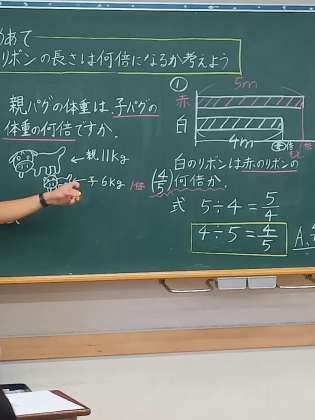 めあて
リボンの長さは何倍になるか考えよう
親パグの体重は、子パグの
体重の何倍ですか。
親11kg
子6kg
1倍
①
5m
赤
白
4m
倍
1倍
白のリボンは赤のリボンの
(4/5)何倍か.
式 5÷4=5/4
4÷5=4/5
A.